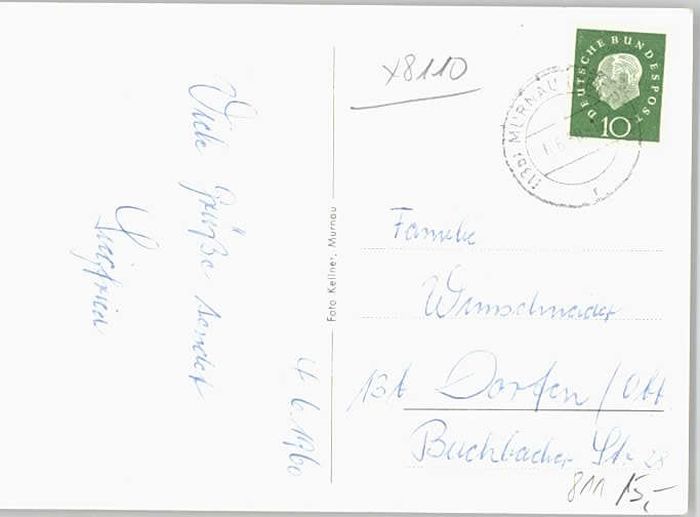 Viele Grüße sendet
Siegfried
4.6.1960
Foto Kellner, Murnau
x8110
DEUTSCHE BUNDESPOST
10
(13b) MURNAU
Familie
Wimschneider
13b Dorfen / Obb
Buchbacher Str. 28
811 15,-